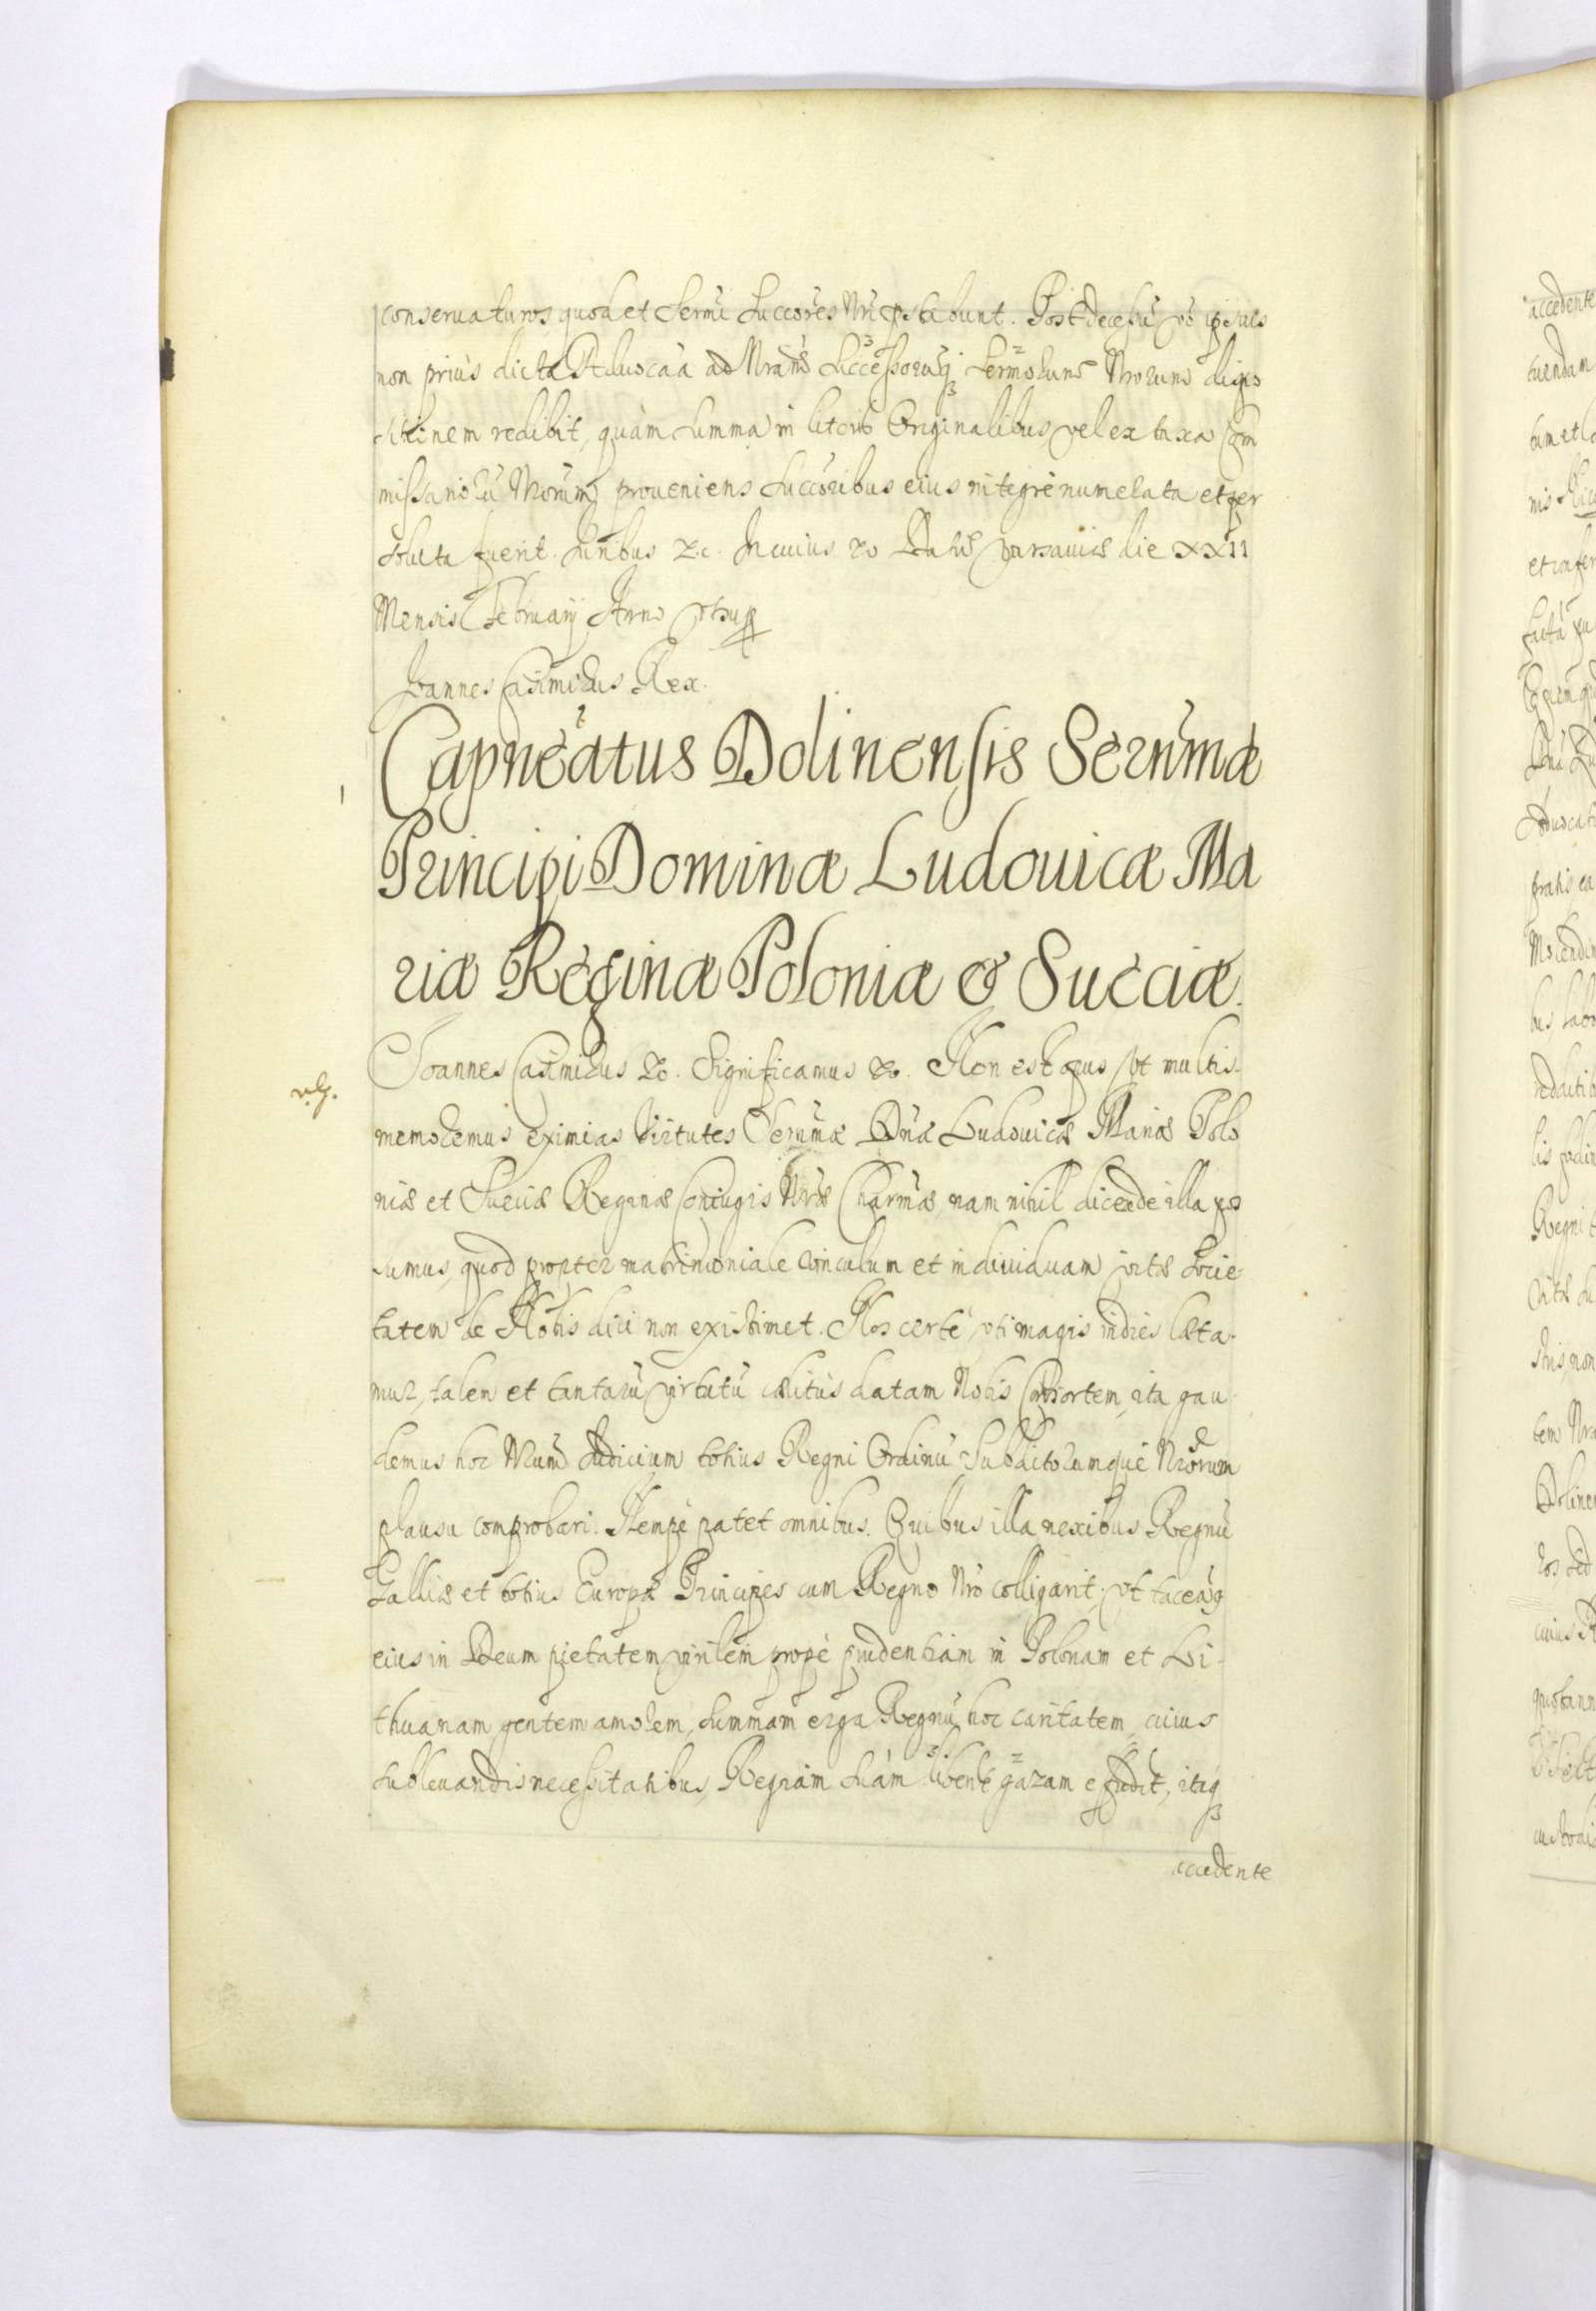 conseruaturos quod et Sermi Succores Nri pstabunt. Post decessu vo ipsius
non prius dicta Aduocaa ad Nram Successorusq Sermorum Nrorum dispo
sitionem redibit, quàm Summa in literis Originalibus, vel ex taxa Com
missarioru Nrorum proueniens Succoribus eius integrè numerata et per
soluta fuerit. Iuribus &c. In cuius &c Datum Varsauiæ die XXII
Mensis Februarij Anno vt sup
Joannes Casimirus Rex.
Capneatus Dolinensis Serñmæ
Principi Dominæ Ludouicæ Ma
riæ Reginæ Poloniæ & Sueciæ.
Joannes Casimirus &c. Significamus &c. Non est opus vt multis
memoremus eximias Virtutes Sernmæ Dnæ Ludouicæ Mariæ Polo
niæ et Sueciæ Reginæ Coniugis Nræ Charmæ, nam nihil dicere de illa pos
sumus, quod propter matrimoniale vinculum et indiuiduam vitæ Socie
tatem de Nobis dici non existimet. Nos certè vti magis indies læta
mur, talem et tantaru virtutu cælitùs datam Nobis Consortem, ita gau
demus hoc Nrum Iudicium totius Regni Ordinu Subditorumque Nrorum
plausu comprobari. Nempè patet omnibus. Quibus illa nexibus Regnu
Galliæ et totius Europæ Principes cum Regno Nro colligarit, vt taceaq
eius in Deum pietatem, virilem propè prudentiam in Polonam et Li
thuanam gentem amorem, Summam erga Regnu hoc caritatem, cuius
subleuandis necessitatibus, Regiam suam libente gazam effudit, itaq
accedente